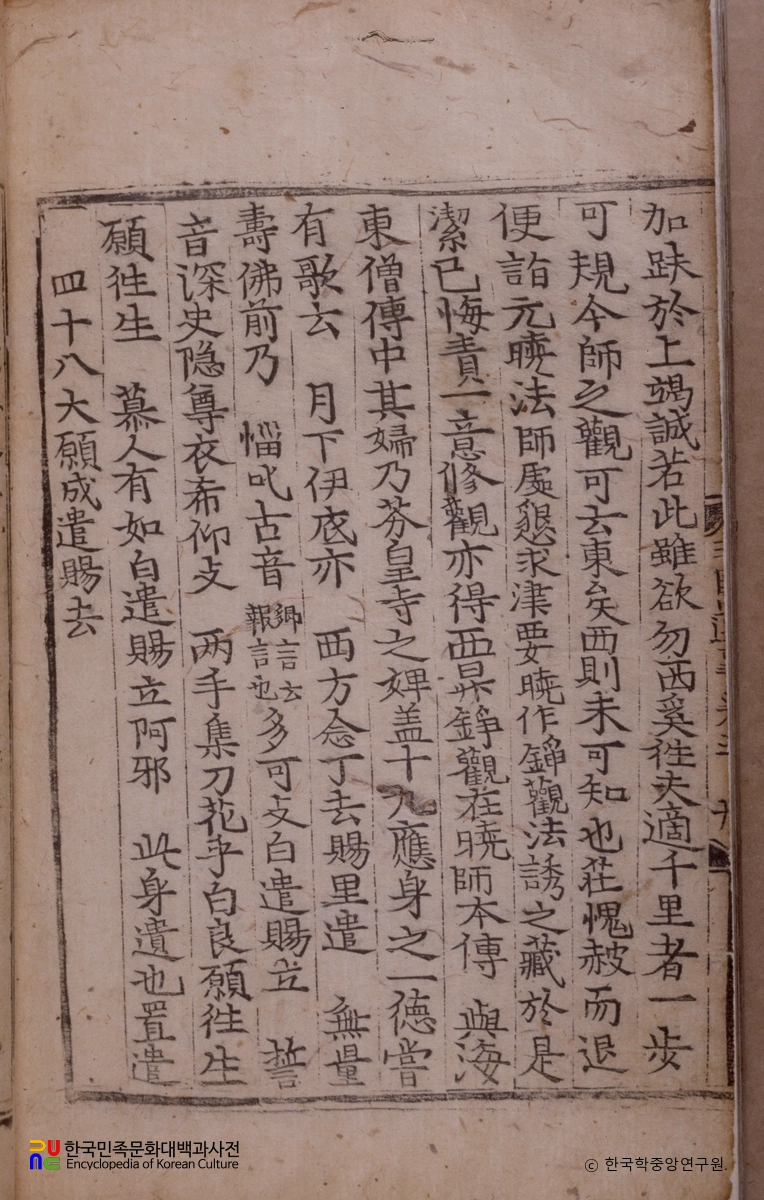 加趺於上竭誠若此雖欲勿西奚徃夫適千里者一步
可規今師之觀可云東矣西則未可知也莊愧赧而退
便詣元曉法師處懇求津要曉作錚觀法誘之藏於是
潔已悔責一意修觀亦得西昇錚觀在曉師本傳 與海
東僧傳中其婦乃芬皇寺之婢盖十九應身之一德嘗
有歌云 月下伊底亦 西方念丁去賜里遣 無量
壽佛前乃 惱叱古音 鄉言云報言也 多可攴白遣賜立 誓
音深史隐尊衣希仰攴 两手集刀花乎白良願徃生
願徃生 慕人有如白遣賜立阿邪 此身遺也置遣
四十八大願成遣賜去
한국민족문화대백과사전
Encyclopedia of Korean Culture
ⓒ 한국학중앙연구원